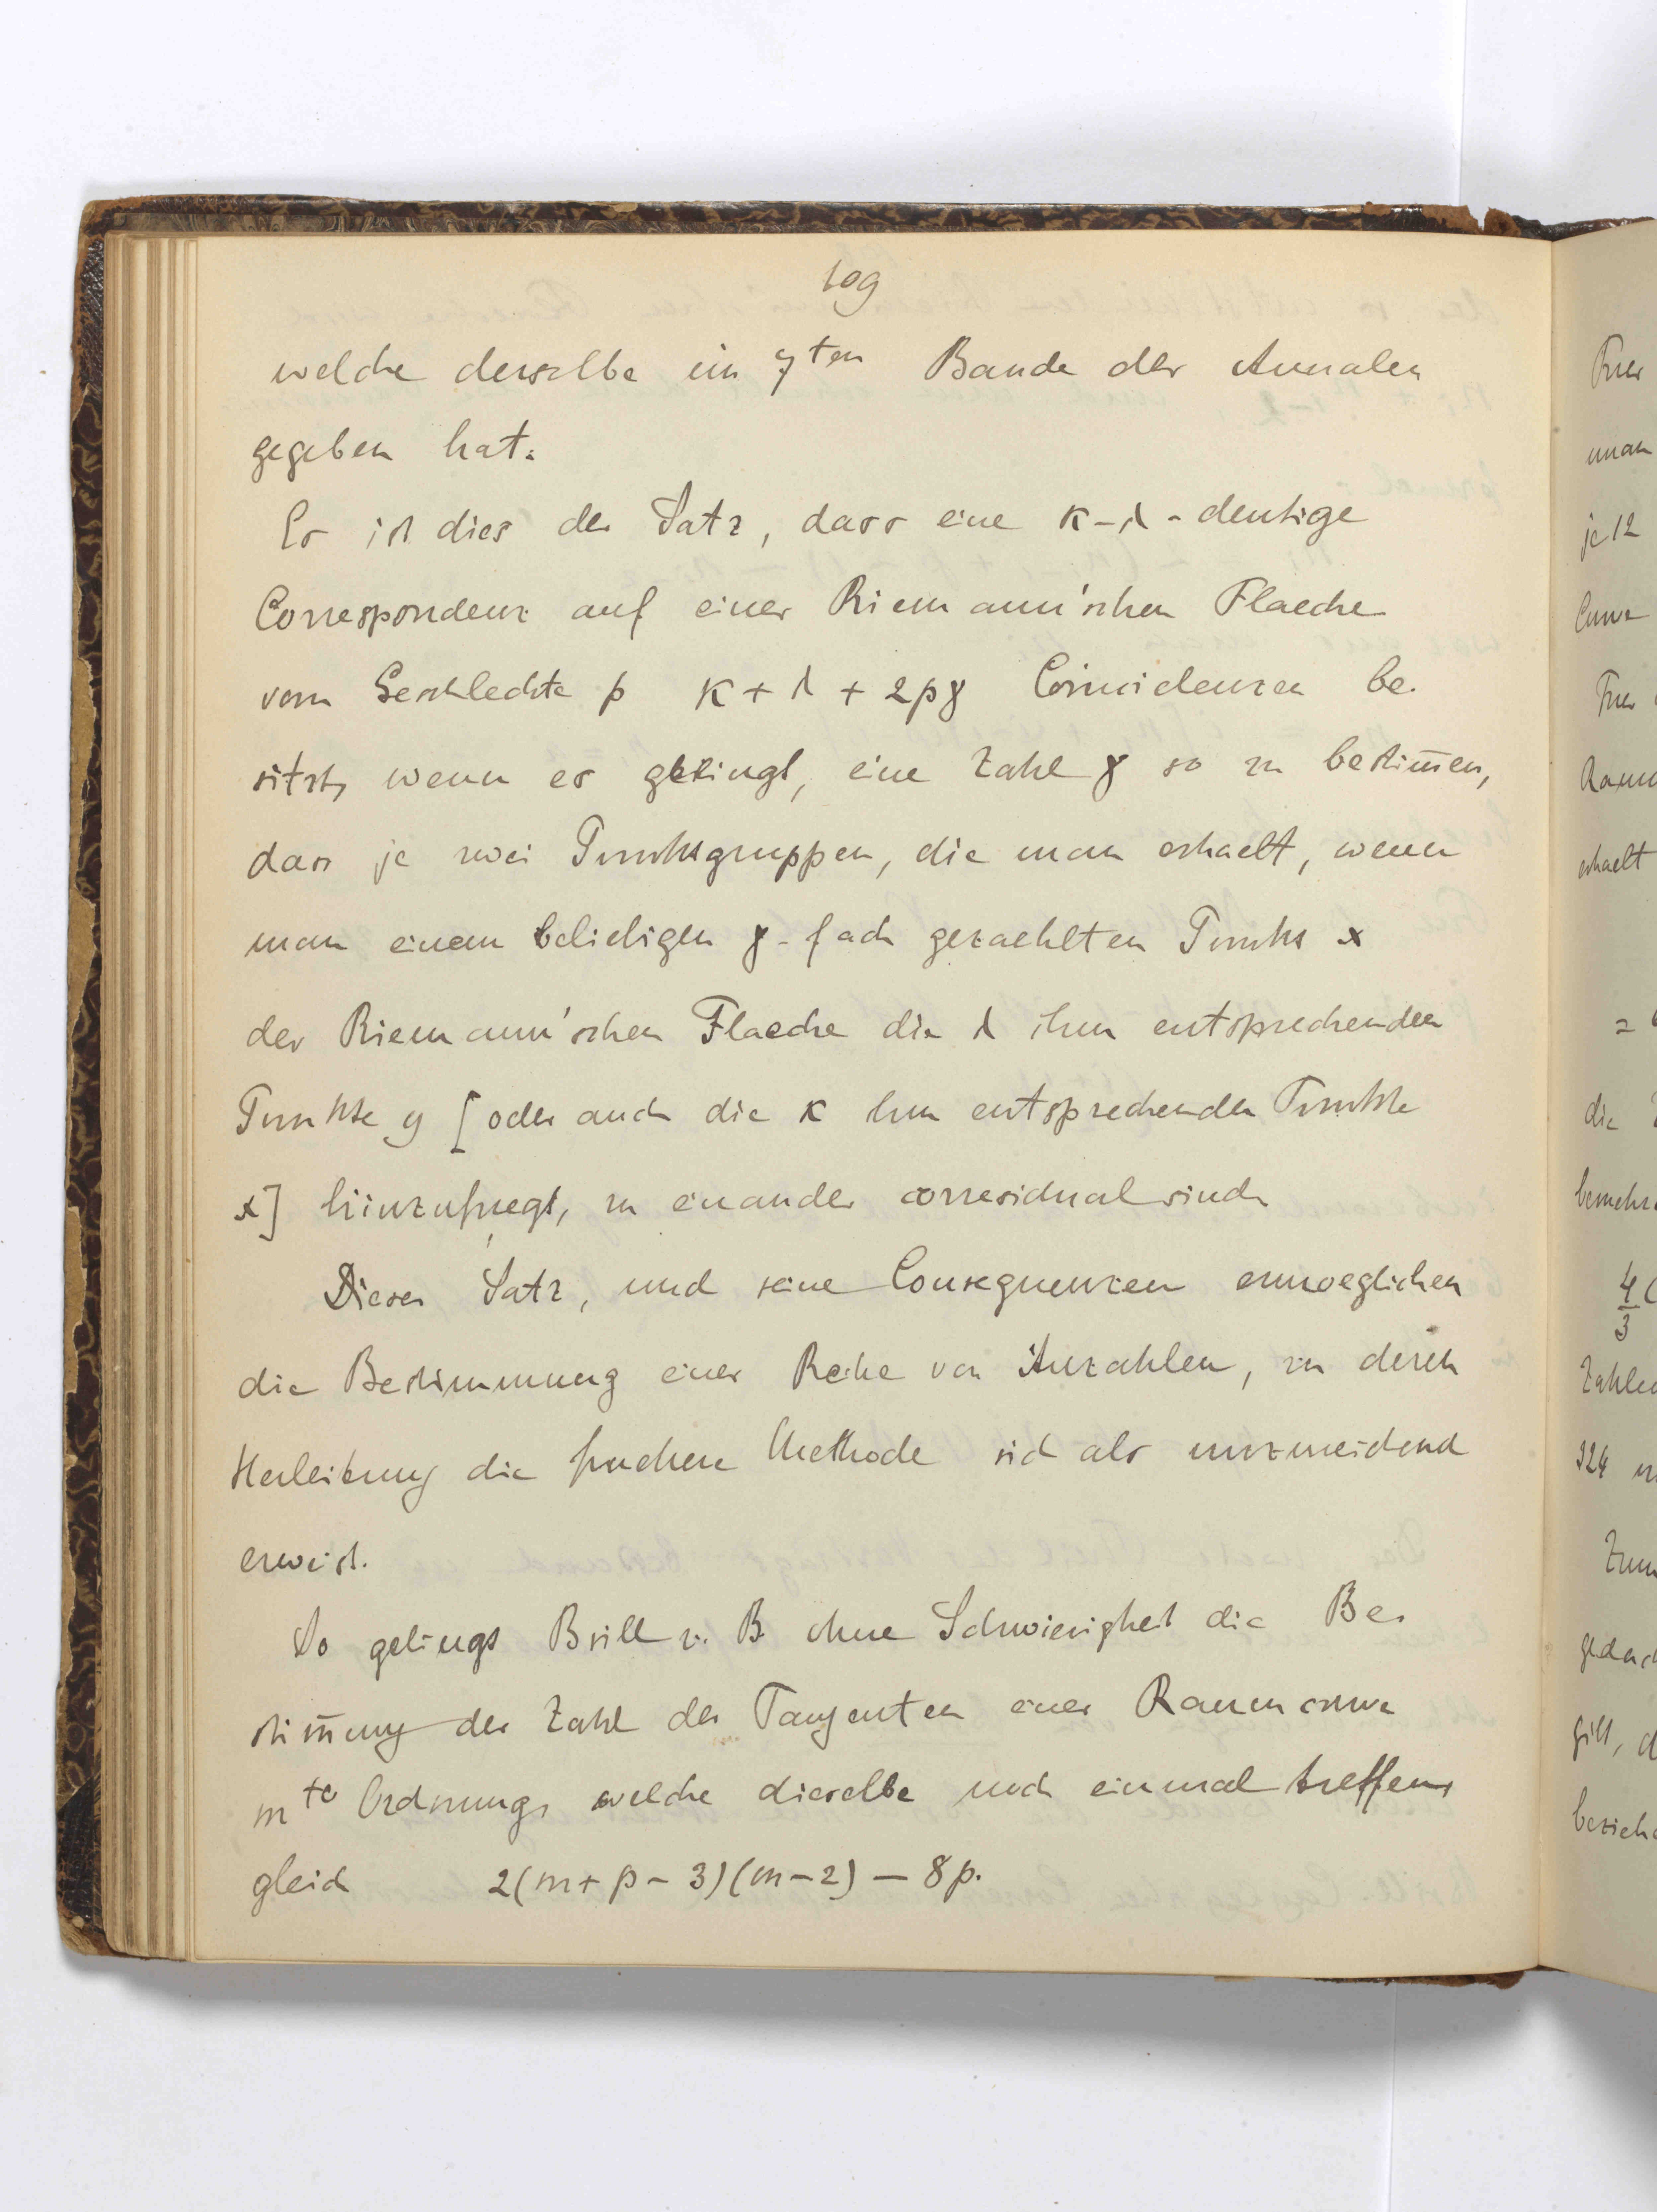 109
welche derselbe im 7ten Bande der Annalen
gegeben hat.
Es ist dies der Satz, dass eine κ-λ-deutige
Correspondenz auf einer Riemann'schen Flaeche
vom Geschlechte p κ + λ + 2pγ Coincidenzen be-
sitzt, wenn es gelingt, eine Zahl γ so zu bestim̅en,
dass je zwei Punktsgruppen, die man erhaelt, wenn
man einem beliebigen γ-fach gezaehlten Punkt x
der Riemann'schen Flaeche die λ ihm entsprechenden
Punkte y [oder auch die κ ihm entsprechenden Punkte
x] hinzufuegt, zu einander corresidual sind.
Dieser Satz, und seine Consequenzen ermoeglichen
die Bestimmung einer Reihe von Anzahlen, zu deren
Herleitung die fruehere Methode sich als unzureichend
erweist.
So gelingt Brill z. B. ohne Schwierigkeit die Be-
stim̅ung der Zahl der Tangenten einer Raumcurve
mter Ordnung, welche dieselbe noch einmal treffen,
gleich 2(m+p-3)(m-2) - 8p.
Fuer
man
je 12
Curve
Fuer
Raum
erhaelt
=
die
4/3 (
Zahlen
324
gedach
gilt, d